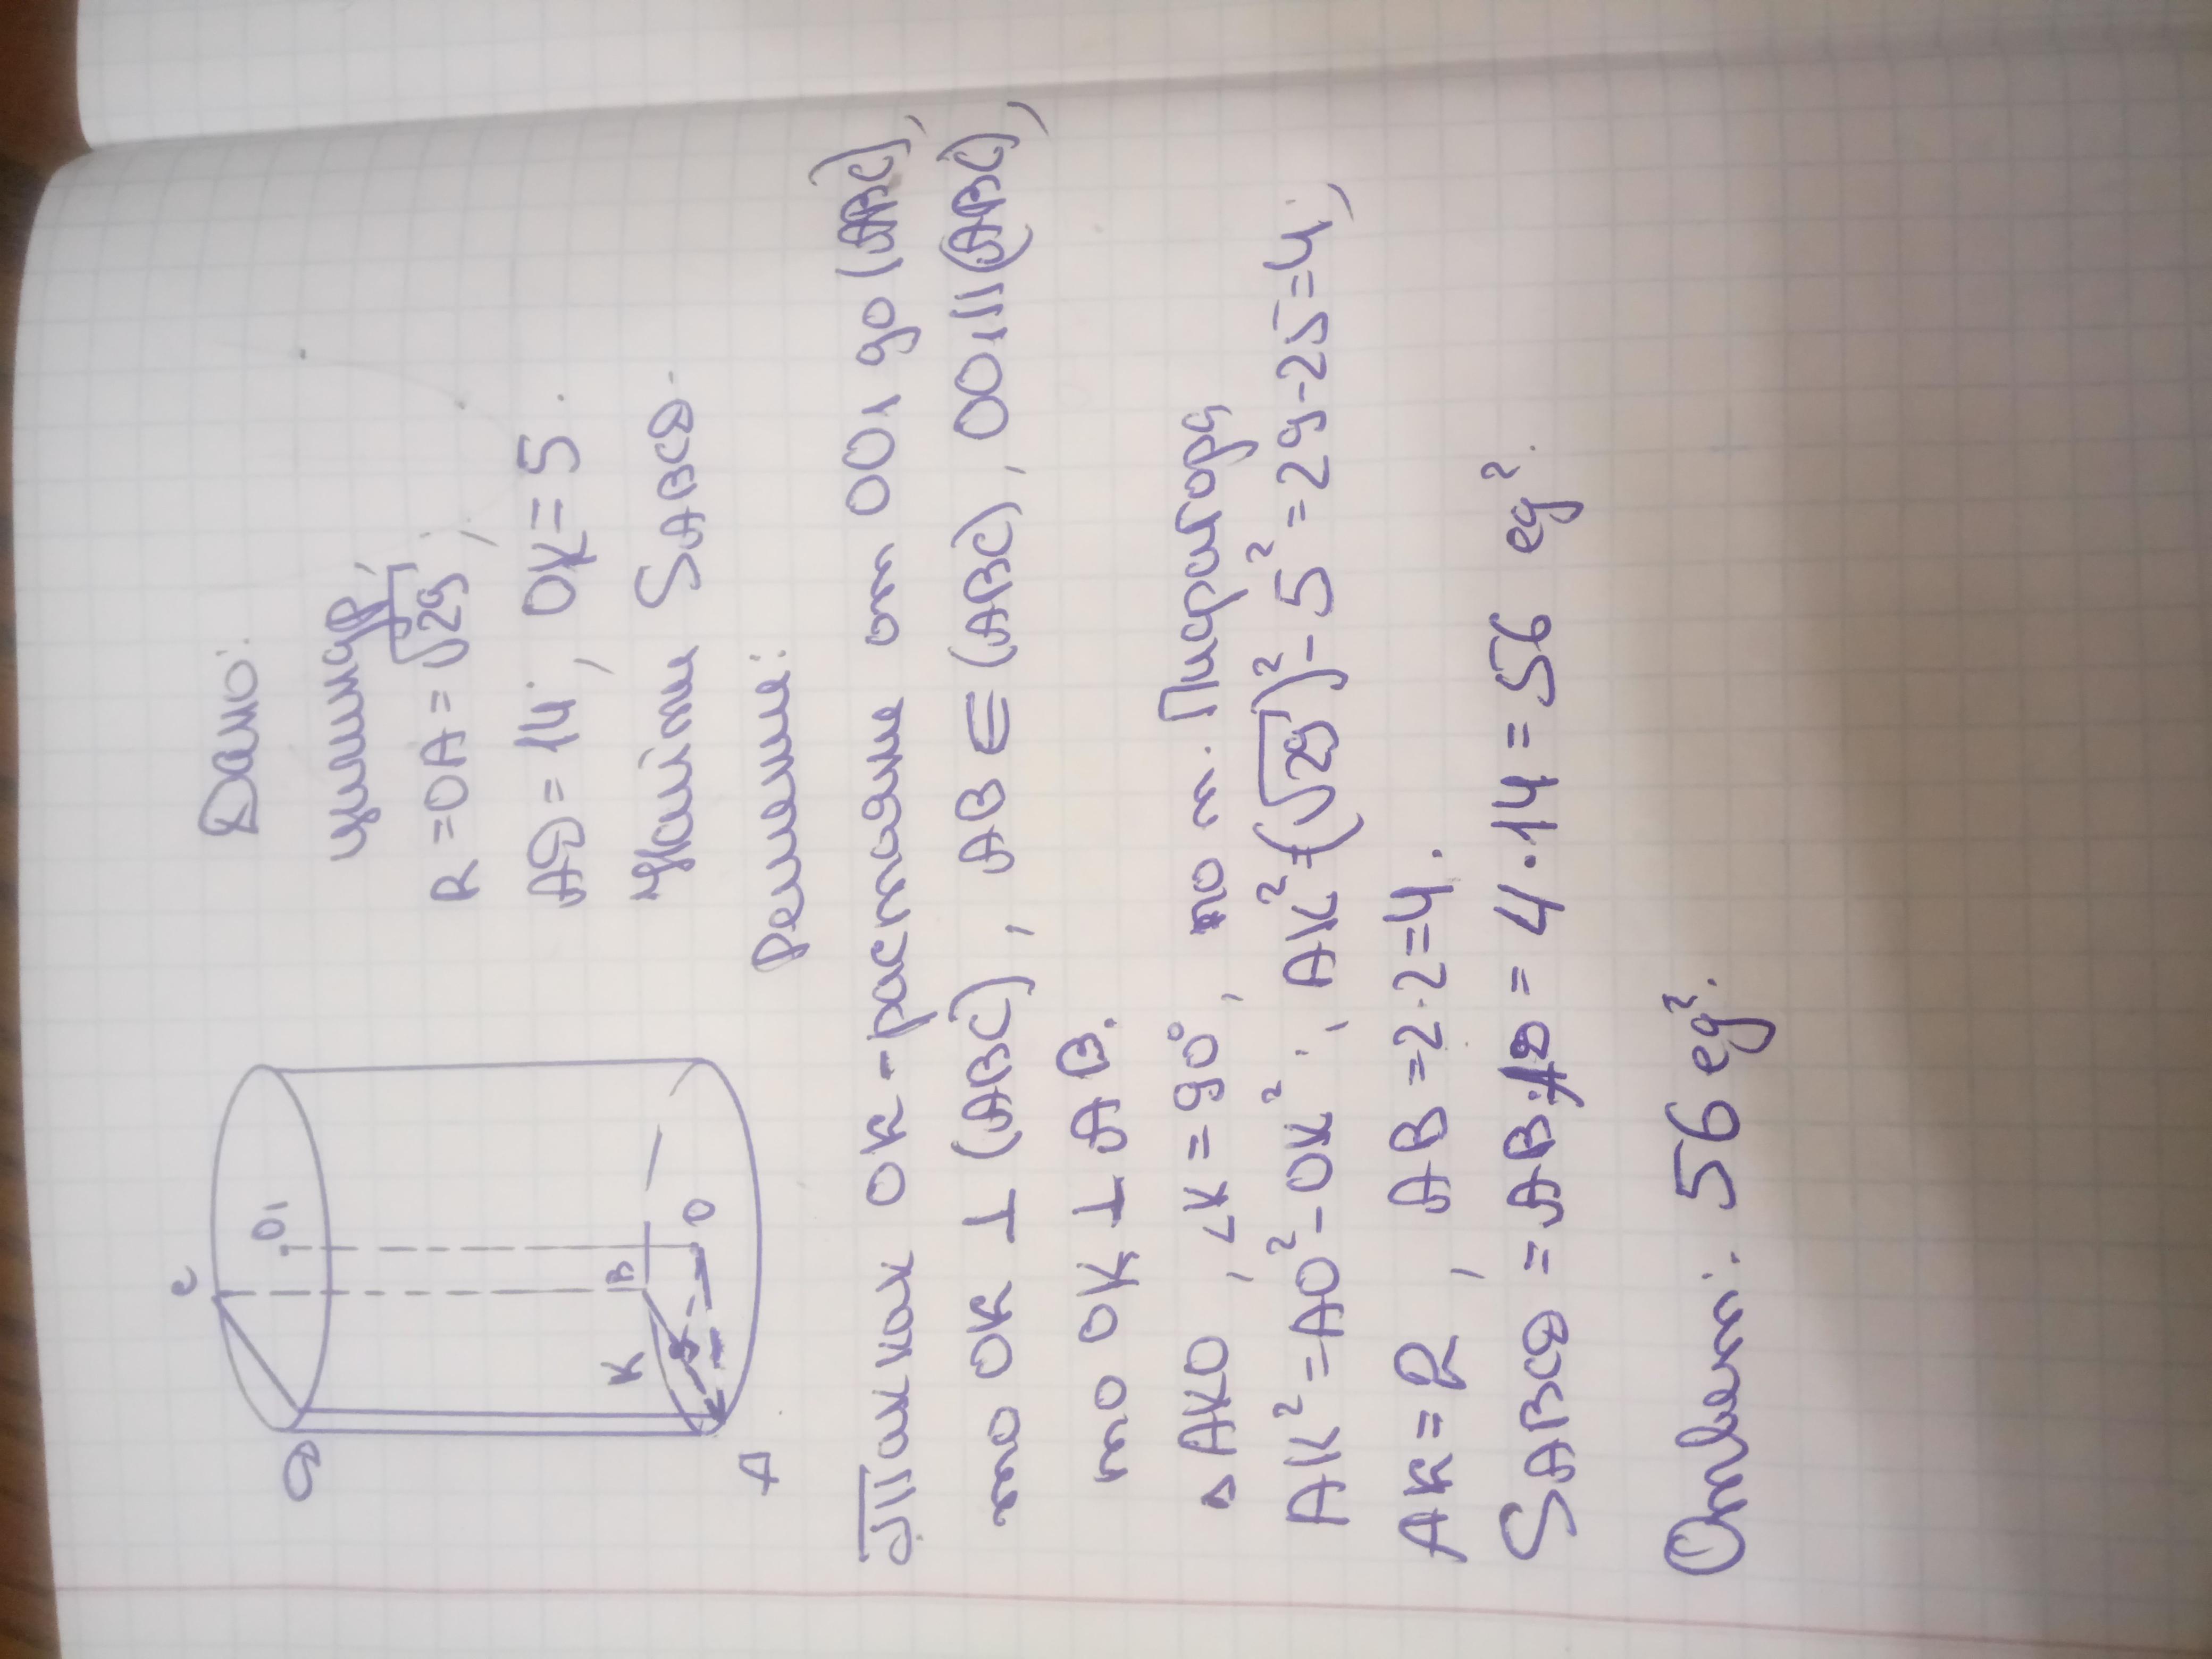 Дано:
цилиндр,
R = OA = √29,
AD = 14, OK = 5.
Найти S ABCD.
Решение:
C
O1
D
B
K
O
A
Так как OK - расстояние от OO1 до (ABC),
то OK ⊥ (ABC), AB ∈ (ABC), OO1 || (ABC),
то OK ⊥ AB.
△ AKO, ∠K = 90°, по т. Пифагора
AK² = AO² - OK²; AK² = (√29)² - 5² = 29 - 25 = 4;
AK = 2, AB = 2·2 = 4.
S ABCD = AB·AD = 4·14 = 56 ед².
Ответ: 56 ед².